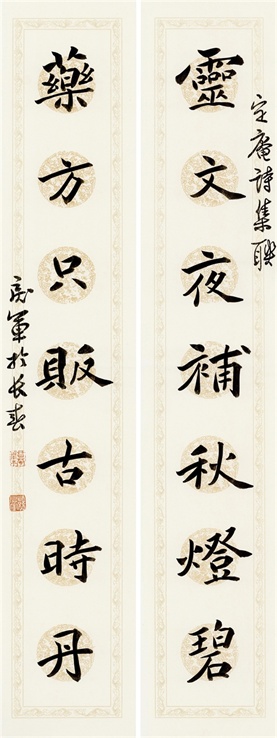 定庵詩集聯
靈文夜補秋燈碧
藥方只販古時丹
軍於長春